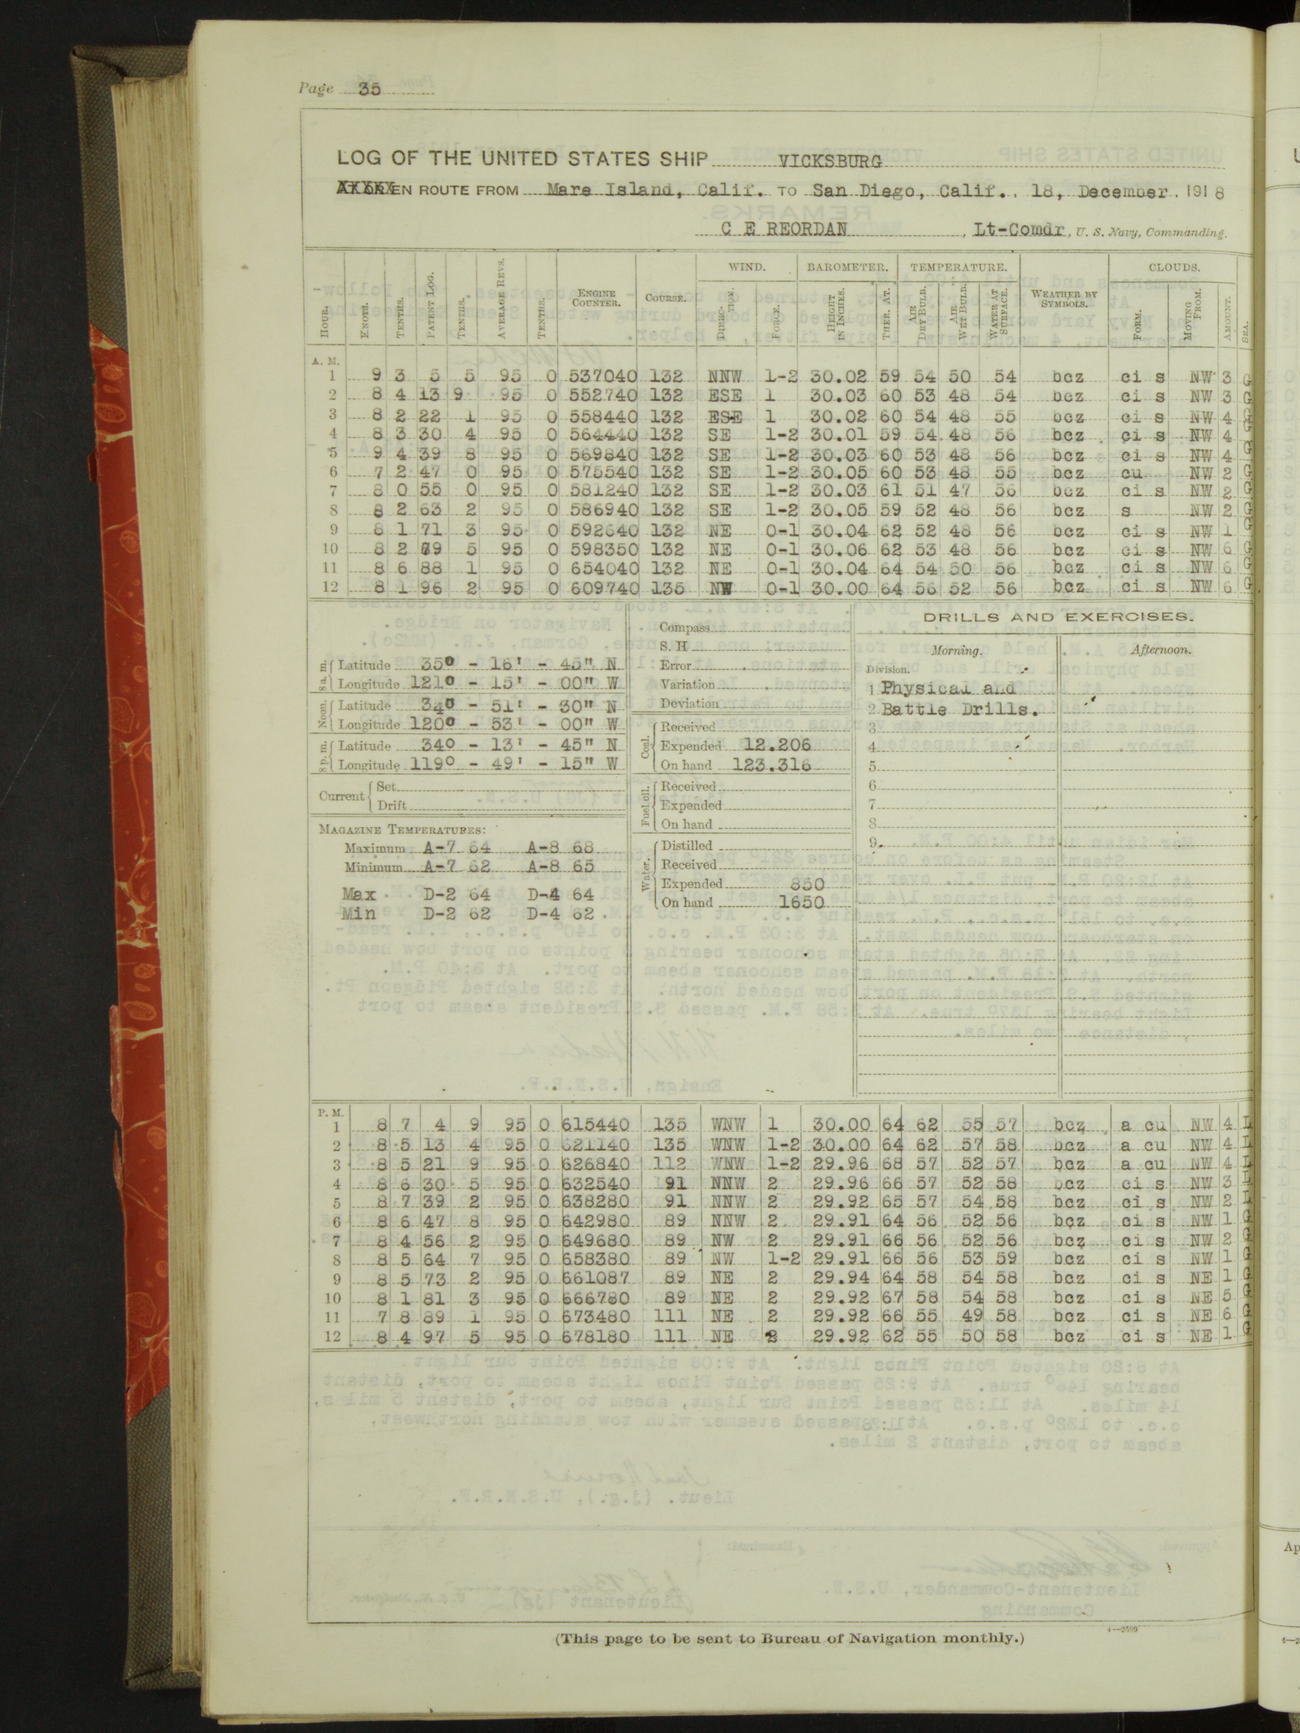 Page 35
LOG OF THE UNITED STATES SHIP VICKSBURG
EN ROUTE FROM Mare Island, Calif. TO San Diego, Calif., 18, December, 1918
C E REORDAN, Lt-Comdr, U. S. Navy, Commanding.
WIND. BAROMETER. TEMPERATURE. CLOUDS.
HOUR. KNOTS. TENTHS. PATENT LOG. TENTHS. AVERAGE REVS. TENTHS. ENGINE COUNTER. COURSE. DIRECTION. FORCE. HEIGHT IN INCHES. THER. AT. AIR DRY BULB. AIR WET BULB. WATER AT SURFACE. WEATHER BY SYMBOLS. FORM. MOVING FROM. AMOUNT. SEA.
A. M.
1 9 3 5 5 95 0 537040 132 NNW 1-2 30.02 59 54 50 54 bcz ci s NW 3 G
2 8 4 13 9 95 0 552740 132 ESE 1 30.03 60 53 48 54 bcz ci s NW 3 G
3 8 2 22 1 95 0 558440 132 ESE 1 30.02 60 54 48 55 bcz ci s NW 4 G
4 8 3 30 4 95 0 564440 132 SE 1-2 30.01 59 54 48 56 bcz ci s NW 4 G
5 9 4 39 8 95 0 569840 132 SE 1-2 30.03 60 53 48 56 bcz ci s NW 4 G
6 7 2 47 0 95 0 575540 132 SE 1-2 30.05 60 53 48 55 bcz cu NW 2 G
7 8 0 55 0 95 0 581240 132 SE 1-2 30.03 61 51 47 56 bcz ci s NW 2 G
8 8 2 63 2 95 0 586940 132 SE 1-2 30.05 59 52 48 56 bcz s NW 2 G
9 8 1 71 3 95 0 592640 132 NE 0-1 30.04 62 52 48 56 bcz ci s NW 1 G
10 8 2 79 5 95 0 598350 132 NE 0-1 30.06 62 53 48 56 bcz ci s NW 6 G
11 8 6 88 1 95 0 654040 132 NE 0-1 30.04 64 54 50 56 bcz ci s NW 6 G
12 8 1 96 2 95 0 609740 135 NW 0-1 30.00 64 56 52 56 bcz ci s NW 6 G
8 a. m. Latitude 35° - 16' - 45" N
Longitude 121° - 15' - 00" W
Noon. Latitude 34° - 51' - 30" N
Longitude 120° - 53' - 00" W
8 p. m. Latitude 34° - 13' - 45" N
Longitude 119° - 49' - 15" W
Current Set
Drift
MAGAZINE TEMPERATURES:
Maximum A-7 64 A-8 68
Minimum A-7 62 A-8 65
Max D-2 64 D-4 64
Min D-2 62 D-4 62.
Compass
S. H
Error
Variation
Deviation
Coal. Received
Expended 12.206
On hand 123.316
Fuel oil. Received
Expended
On hand
Water. Distilled
Received
Expended 850
On hand 1650
DRILLS AND EXERCISES.
Morning. Afternoon.
Division.
1 Physical and
2 Battle Drills.
3
4
5
6
7
8
9
P. M.
1 8 7 4 9 95 0 615440 135 WNW 1 30.00 64 62 55 57 bcz a cu NW 4 L
2 8 5 13 4 95 0 621140 135 WNW 1-2 30.00 64 62 57 58 bcz a cu NW 4 L
3 8 5 21 9 95 0 626840 112 WNW 1-2 29.96 68 57 52 57 bcz a cu NW 4 L
4 8 6 30 5 95 0 632540 91 NNW 2 29.96 66 57 52 58 bcz ci s NW 3 L
5 8 7 39 2 95 0 638280 91 NNW 2 29.92 65 57 54 58 bcz ci s NW 2 L
6 8 6 47 8 95 0 642980 89 NNW 2 29.91 64 56 52 56 bcz ci s NW 1 G
7 8 4 56 2 95 0 649680 89 NW 2 29.91 66 56 52 56 bcz ci s NW 2 G
8 8 5 64 7 95 0 658380 89 NW 1-2 29.91 66 56 53 59 bcz ci s NW 1 G
9 8 5 73 2 95 0 661087 89 NE 2 29.94 64 58 54 58 bcz ci s NE 1 G
10 8 1 81 3 95 0 666780 89 NE 2 29.92 67 58 54 58 bcz ci s NE 5 G
11 7 8 89 1 95 0 673480 111 NE 2 29.92 66 55 49 58 bcz ci s NE 6 G
12 8 4 97 5 95 0 678180 111 NE 2 29.92 62 55 50 58 bcz ci s NE 1 G
(This page to be sent to Bureau of Navigation monthly.)